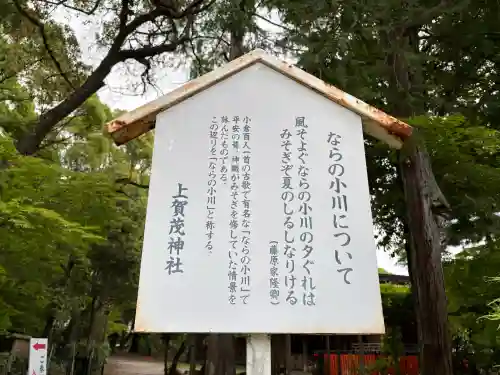 ならの小川について
風そよぐならの小川の夕ぐれは
みそぎぞ夏のしるしなりける
(藤原家隆卿)
小倉百人一首の古歌で有名な「ならの小川」で
平安の昔、神職がみそぎを修していた情景を
詠んだものである。
この辺りを「ならの小川」と称する。
上賀茂神社